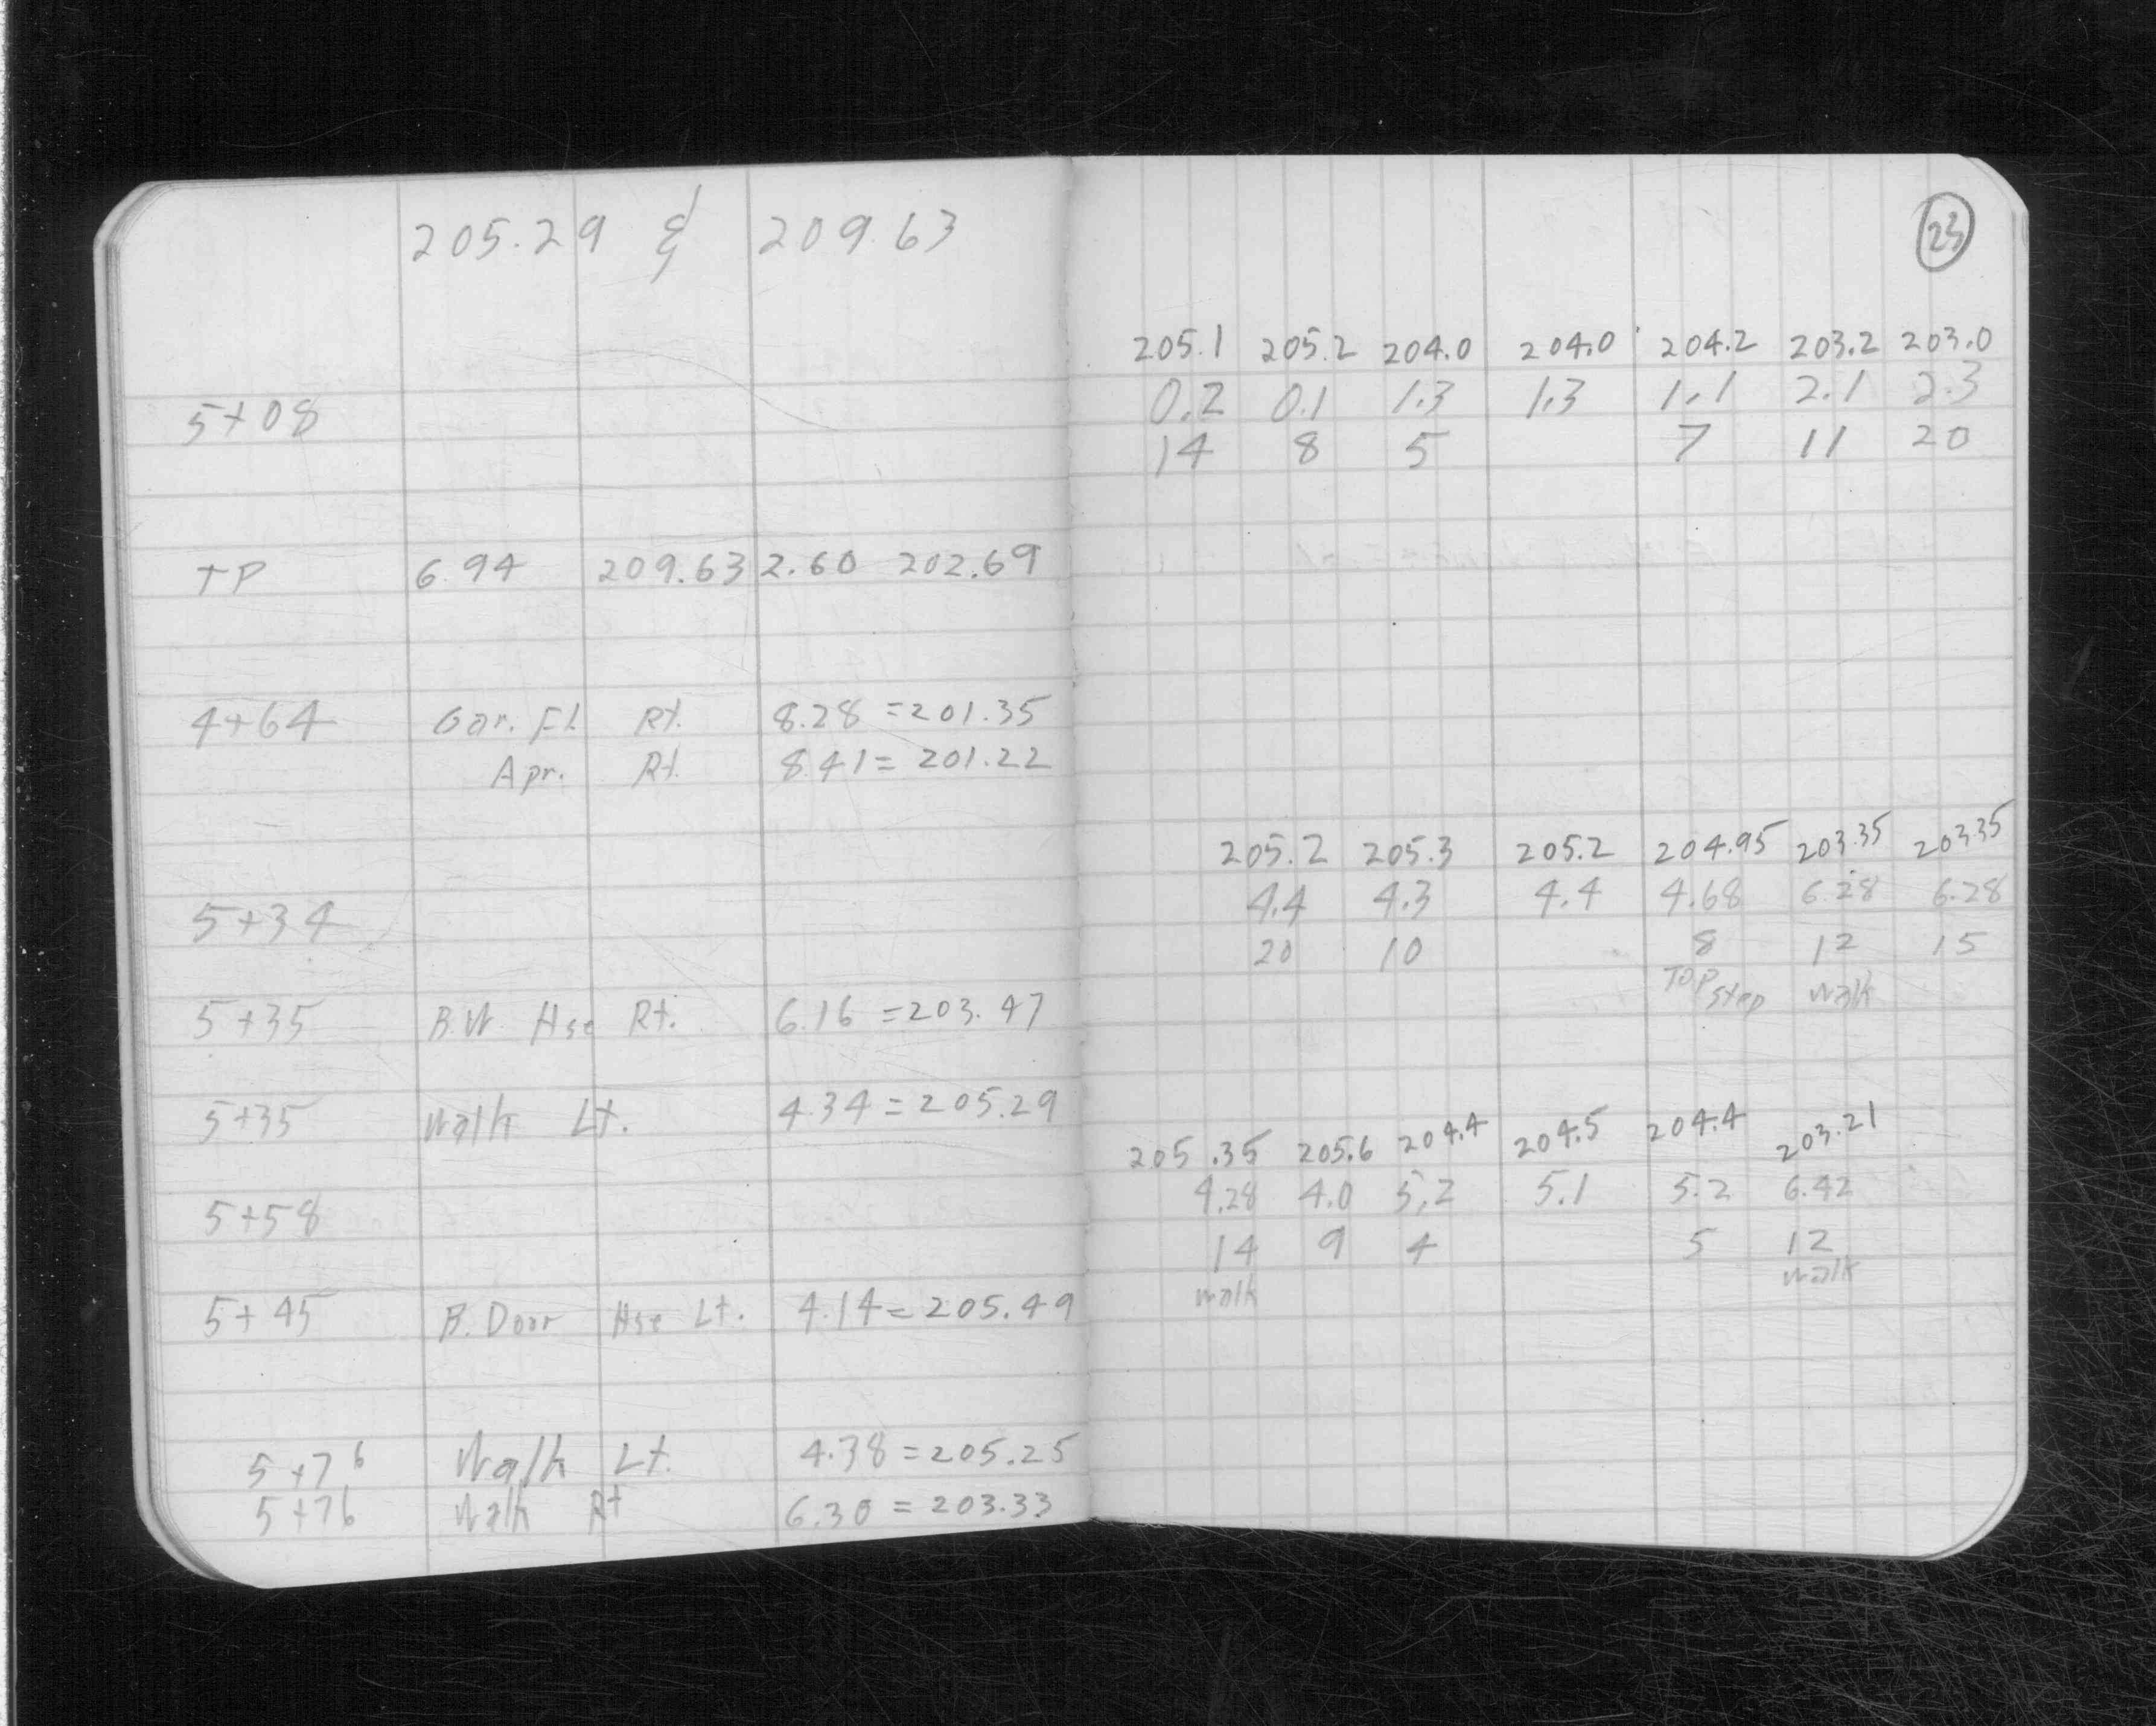 205.29 & 209.63
5+08
TP 6.94 209.63 2.60 202.69
4+64 Gar. Fl. Rt. 8.28 = 201.35
Apr. Rt. 8.41 = 201.22
5+34
5+35 B.W. Hse Rt. 6.16 = 203.47
5+35 Walk Lt. 4.34 = 205.29
5+58
5+45 B. Door Hse Lt. 4.14 = 205.49
5+76 Walk Lt. 4.38 = 205.25
5+76 Walk Rt 6.30 = 203.33
23
205.1 205.2 204.0 204.0 204.2 203.2 203.0
0.2 0.1 1.3 1.3 1.1 2.1 2.3
14 8 5 7 11 20
205.2 205.3 205.2 204.95 203.35 203.35
4.4 4.3 4.4 4.68 6.28 6.28
20 10 8 12 15
Top Step Walk
205.35 205.6 204.4 204.5 204.4 203.21
4.28 4.0 5.2 5.1 5.2 6.42
14 9 4 5 12
Walk Walk